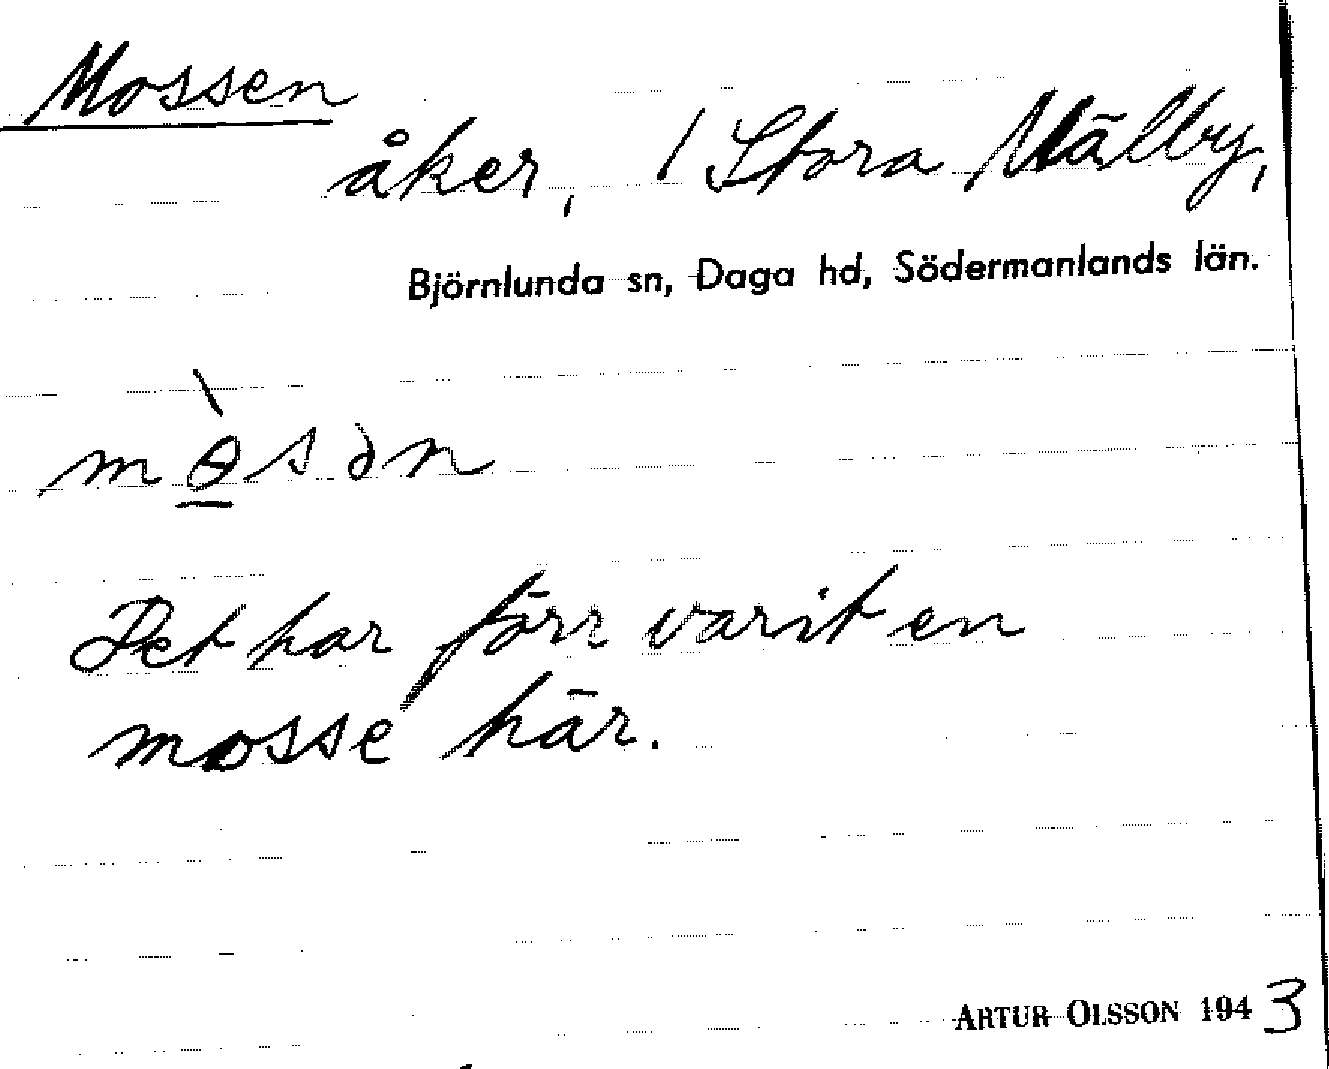 Mossen
åker, / Stora Mälby,
Björnlunda sn, Daga hd, Södermanlands län.
mɵ̀sən
Det har förr varit en
mosse här.
ARTUR OLSSON 1943